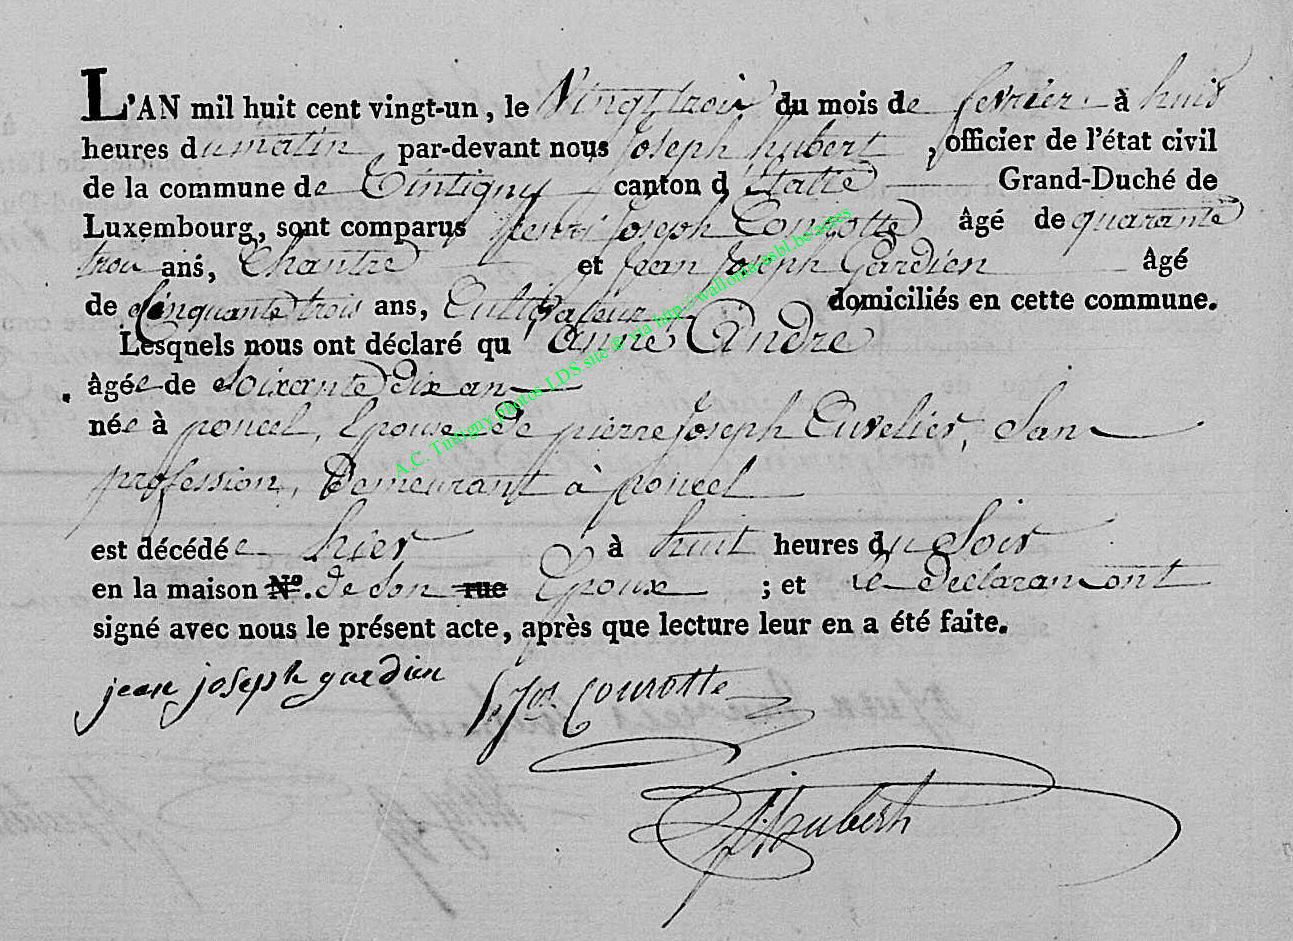 L'AN mil huit cent vingt-un, le Vingt trois du mois de fevrier à huit
heures du matin par-devant nous Joseph hubert, officier de l'état civil
de la commune de Tintigny canton d'Etalle Grand-Duché de
Luxembourg, sont comparus henri joseph Courotte âgé de quarante
trois ans, Chantre et Jean Joseph Gardien âgé
de Cinquante trois ans, Cultivateur domiciliés en cette commune.
Lesqnels nous ont déclaré qu'anne Andre
âgée de Soixante dix an
née à poncel, Epouse de pierre Joseph Cuvelier, San
profession, Demeurant à poncel
est décédée hier à huit heures du Soir
en la maison N.º de Son rue Epoux ; et le declaran ont
signé avec nous le présent acte, après que lecture leur en a été faite.
jean joseph gardien h jos Courotte
J hubert
A.C. Tintigny photos LDS site & via http://wallonia-asbl.be/actes